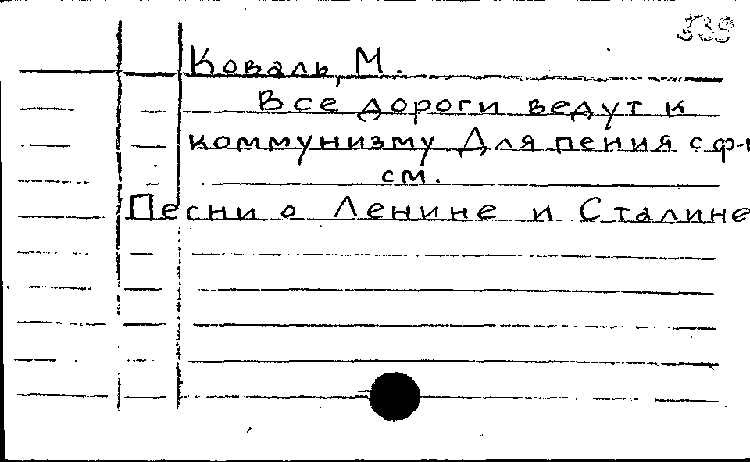 539
Коваль, М.
Все дороги ведут к
коммунизму Для пения с ф-
см.
Песни о Ленине и Сталине